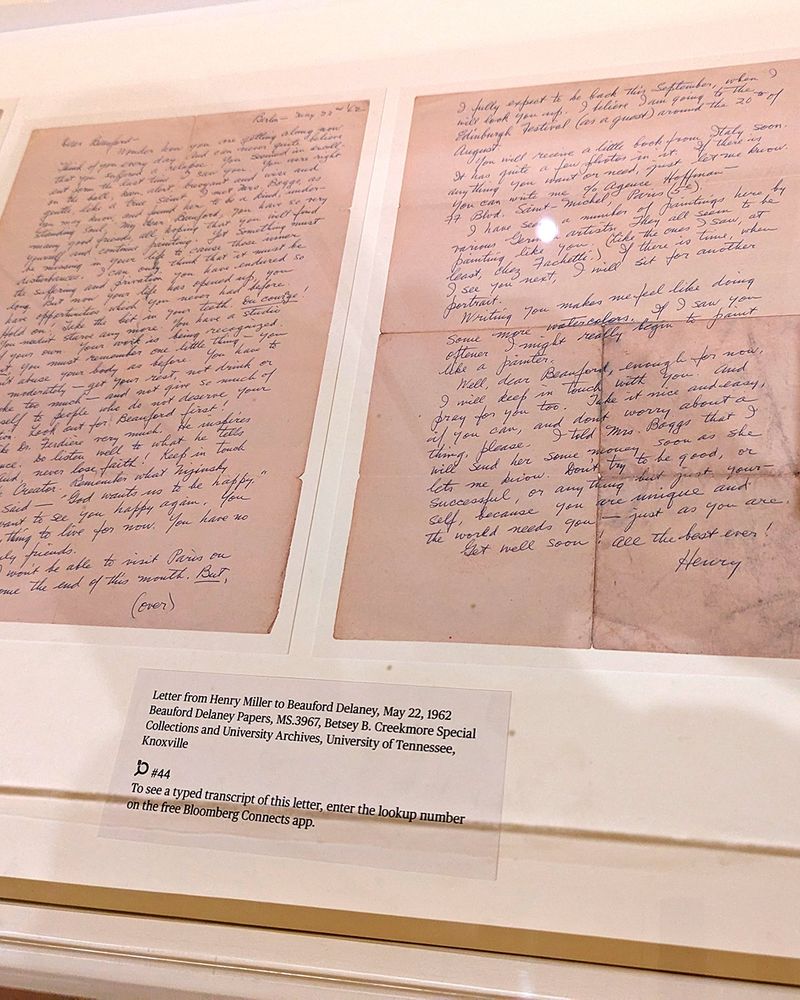 Berlin — May 22nd '62
Dear Beauford —
Wonder how you are getting along now.
Think of you every day. And can never quite believe
that you suffered a relapse. You seemed in excell-
ent form the last time I saw you. You were right
on the ball. Even alert buoyant and wise and
gentle, like a true Saint. I met Mrs. Boggs, as
you may know and found her to be a kind, under-
standing Soul. My dear Beauford, you have so very
many good friends, all hoping that you will find
yourself and continue painting. But Something must
be missing in your life to cause these inner
disturbances. I can only think that it must be
the suffering and privation you have endured so
long. But now your life has opened up, you
have opportunities which you never had before.
Hold on, take the bit in your teeth. Du courage!
You needn't starve any more. You have a studio
of your own. Your work is being recognized.
But, you must remember one little thing — you
can't abuse your body as before. You have to
moderately — get your rest, not drink or
too much — and not give so much of
self to people who do not deserve your
Look out for Beauford first!
Dr. Ferdiere very much. He inspires
Do listen well to what he tells
never lose faith! Keep in touch
Creator. Remember what Nijinsky
said — "God wants us to be happy."
want to see you happy again. You
thing to live for now. You have no
friends.
won't be able to visit Paris on
the end of this month. But,
(over)
I fully expect to be back this September, when I
will look you up. I believe I am going to the
Edinburgh Festival (as a guest) around the 20th of
August.
You will receive a little book from Italy soon.
It has quite a few photos in it. If there is
anything you want or need, just let me know.
You can write me c/o Agence Hoffman —
77 Blvd. Saint-Michel, Paris (5e).
I have seen a number of paintings here by
various German artists. They all seem to be
painting like you. (Like the ones I saw, at
least, chez Fachetti.) If there is time, when
I see you next, I will sit for another
portrait.
Writing you makes me feel like doing
some more watercolors. If I saw you
oftener I might really begin to paint
like a painter.
Well, dear Beauford, enough for now.
I will keep in touch with you. And
pray for you too. Take it nice and easy,
if you can, and don't worry about a
thing, please. I told Mrs. Boggs that I
will send her some money soon as she
lets me know. Don't try to be good, or
successful, or anything but just your-
self, because you are unique and
the world needs you — just as you are.
Get well soon! All the best ever!
Henry
Letter from Henry Miller to Beauford Delaney, May 22, 1962
Beauford Delaney Papers, MS.3967, Betsey B. Creekmore Special
Collections and University Archives, University of Tennessee,
Knoxville
#44
To see a typed transcript of this letter, enter the lookup number
on the free Bloomberg Connects app.